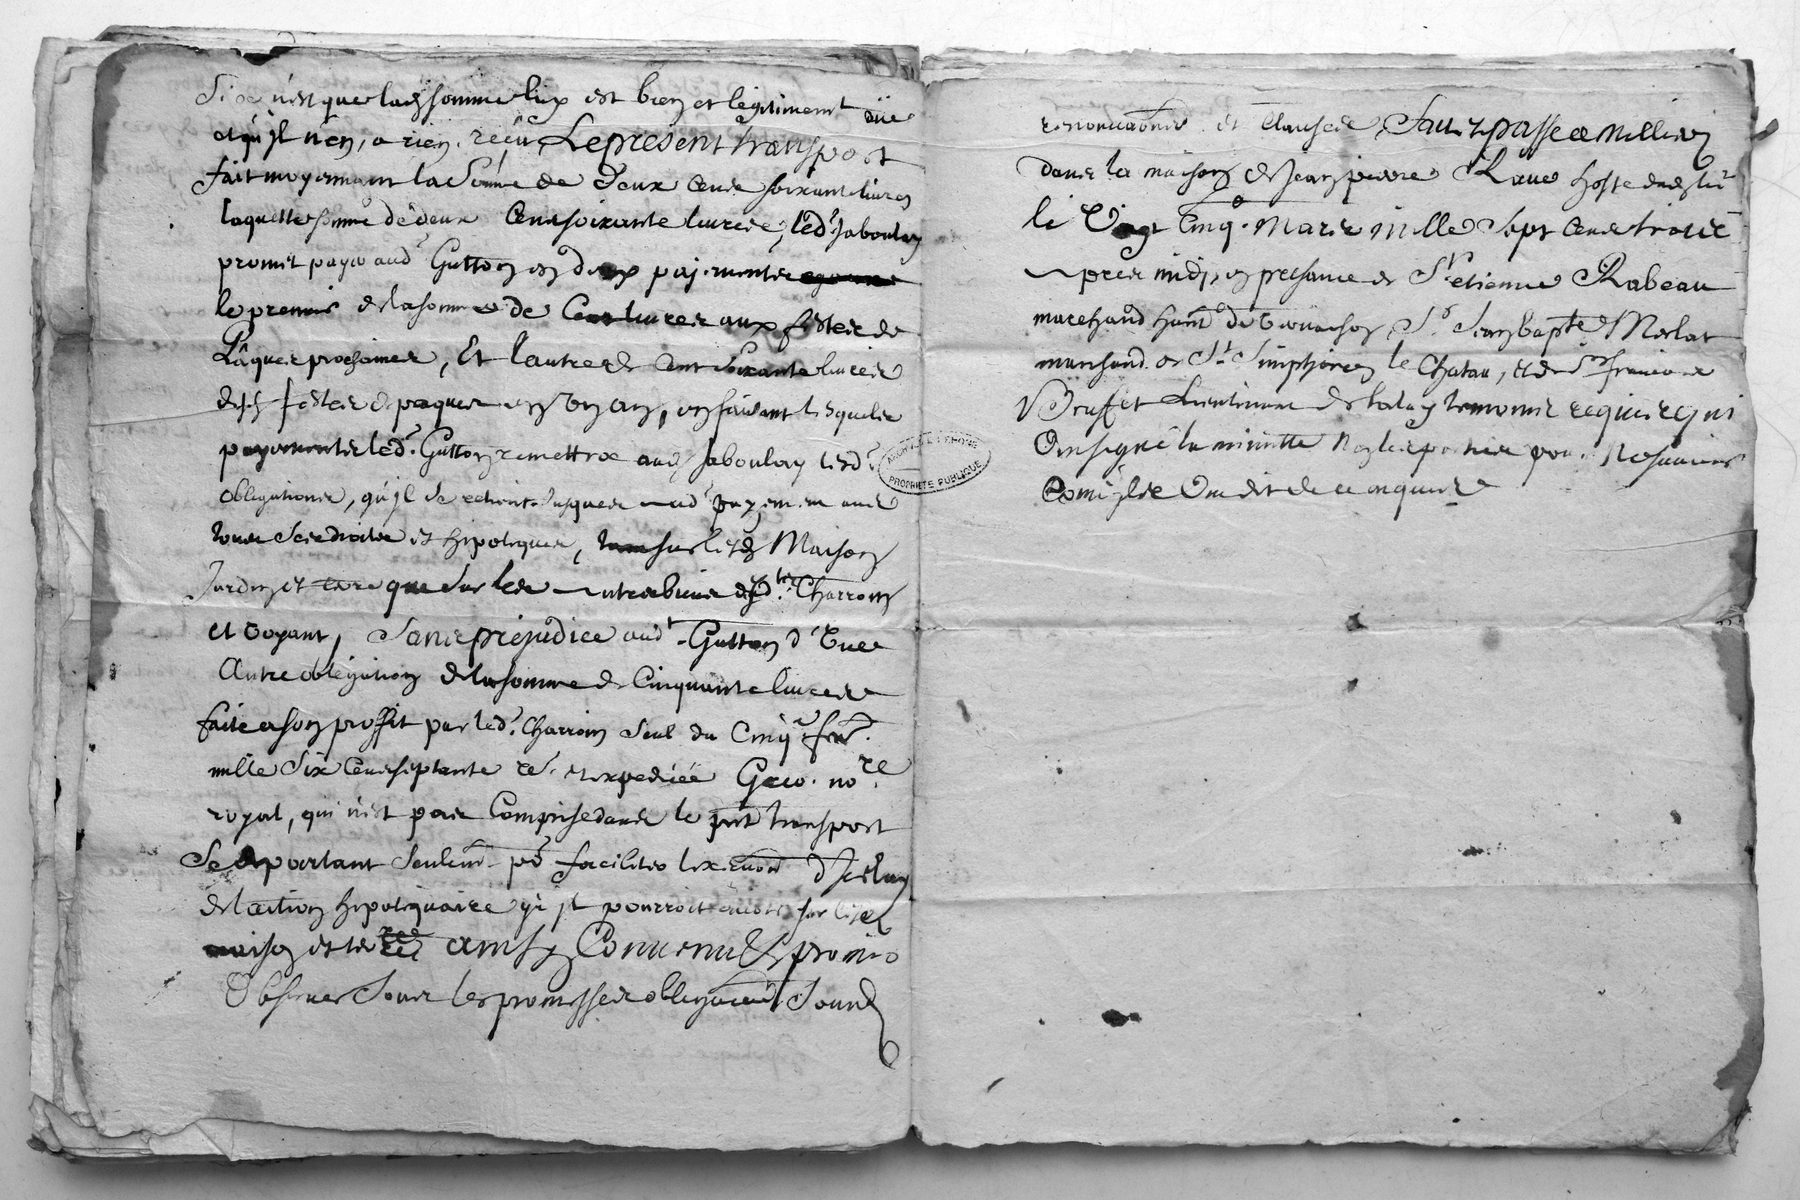 Si ce n'est que lad. somme luy est bien et legitimem.t düe
et qu'jl n'en, a rien, recû, Le present transport
fait moyennant la Somme de deux cens soixante livres
laquelle somme de deux Cens soixante livres, led.t Jaboulay
promet payer aud.t Gutton en deux payements
le premier de la somme de Cent livres aux festes de
Pâques prochaines, Et l'autre de cent Soixante livres
festes de paques en un an, en faisant lesquels
payements led.t Gutton remettra aud. Jaboulay lesd.s
obligations, qu'jl se retient jusques aud.t payement avec
tous ses droits et hipoteques, tant sur lesd. Maison
Jardin et terre que sur les autres biens desd.ts Charroin
et Voyant, Sans prejudice aud.t Gutton d'Une
Autre obligation de la somme de Cinquante livres
faite a son proffit par led.t Charroin seul du Cinq
mille Six Cens septante no.re
royal, qui n'est pas Comprise dans le pnt transport
Se departant seulem.t po.r faciliter d'jceluy
de l'action hipotequaire qu'jl pourroit avoir sur lesd.
maison et terre ainsy Convenu & promis
Observer Sous les promesses obligations Soumis.
renonciations et Clauses, Fait & passé a
dans la maison de Jean pierre Rave hoste dud. lieu
le Vingt Cinq.e Mars mille Sept Cens trois
apres midy, en presance de S.r etienne Rabeau
marchand S.r Jean bapt.e Merlat
marchand de S.t Simphorien le Chatau, et de S.r francois
Lieutenant temoins requis qui
Ont signé la minutte non les parties pour ne scavoir
Comme jls Ont dit de ce enquis
ARCHIVES RHÔNE
PROPRIÉTÉ PUBLIQUE